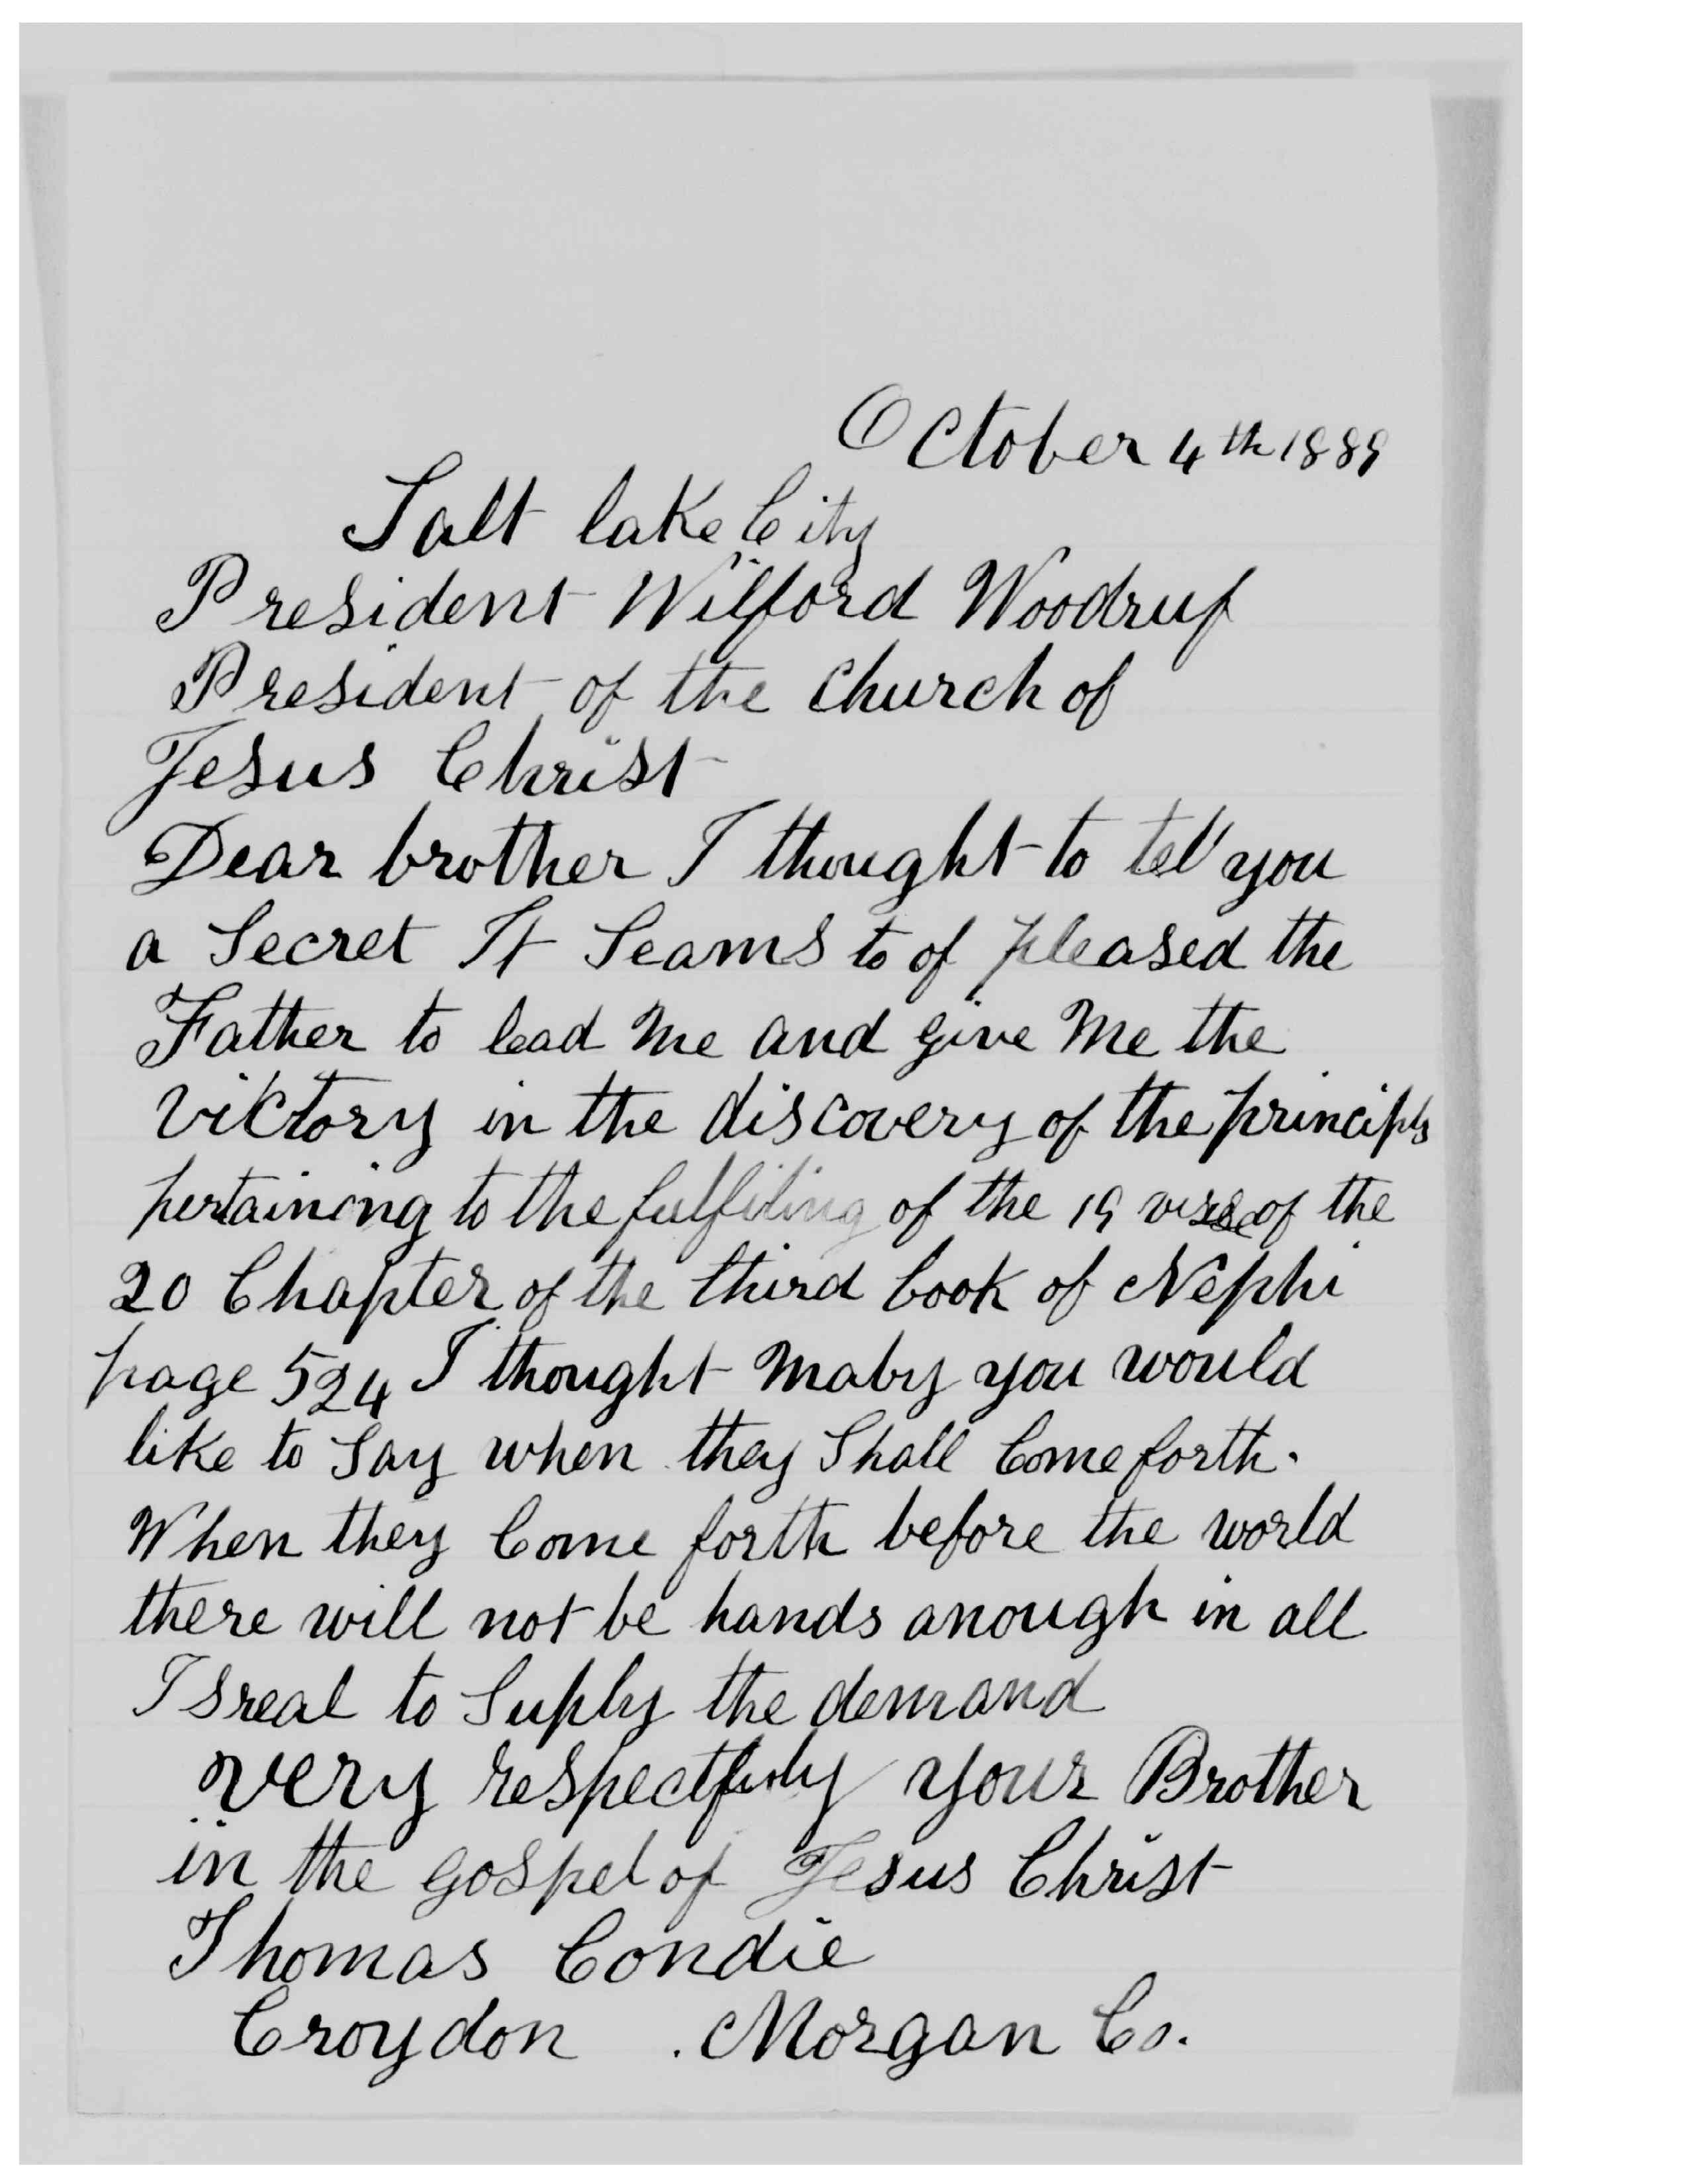 October 4th 1889
Salt lake City
President Wilford Woodruf
President of the Church of
Jesus Christ
Dear brother I thought to tell you
a Secret It Seams to of pleased the
Father to lead Me and give Me the
victory in the discovery of the principls
pertaining to the fulfiling of the 19 verse of the
20 Chapter of the third book of Nephi
page 524 I thought Maby you would
like to Say when they Shall Come forth.
When they Come forth before the world
there will not be hands anough in all
Isreal to Suply the demand
very respectfuly your Brother
in the gospel of Jesus Christ
Thomas Condie
Croydon . Morgan Co.